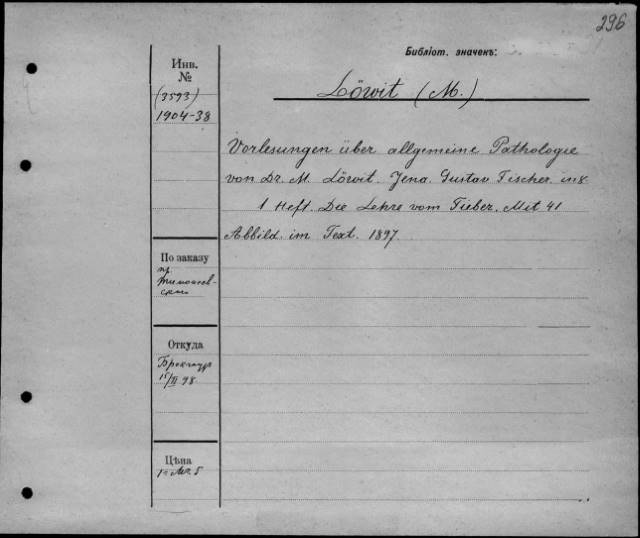 296
Библіот. значекъ:
Инв.
№
Löwit (M.)
(3593)
1904-38
Vorlesungen über allgemeine Pathologie
von Dr. M. Löwit. Jena. Gustav Fischer. in 8
1 Heft. Die Lehre vom Fieber. Mit 41
Abbild. im Text. 1897.
По заказу
пр.
Откуда
15/II 98
Цѣна